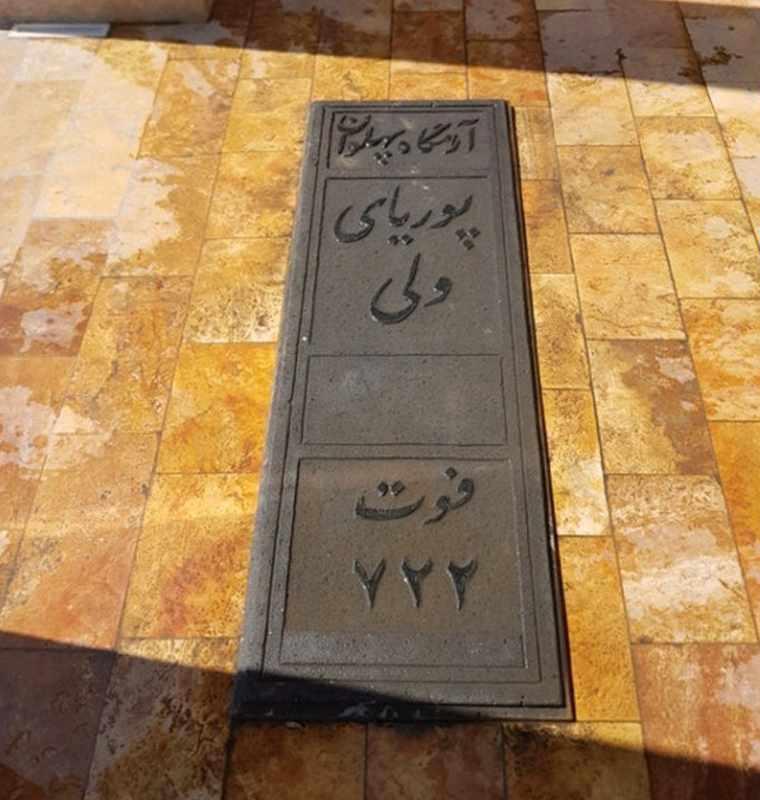 آرامگاه پهلوان
پوریای
ولی
فوت
۷۲۲